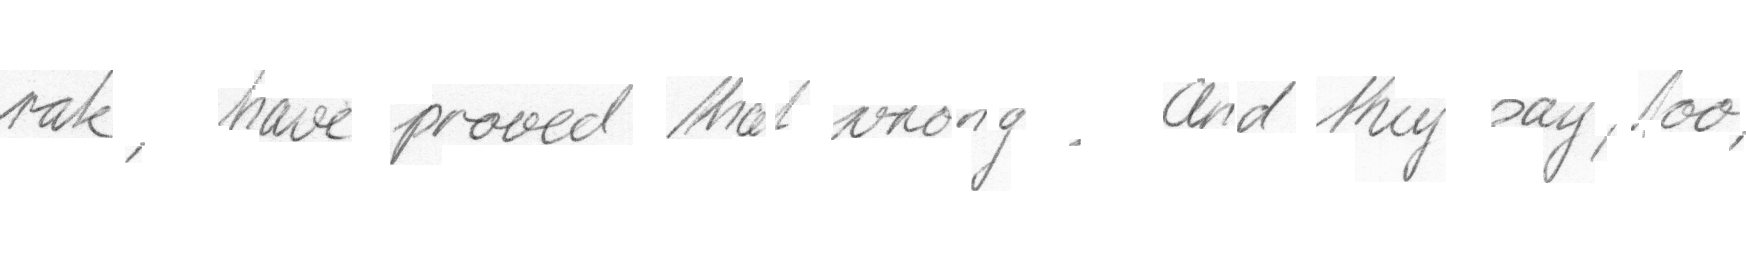 rate, have proved that wrong. And they say, too,